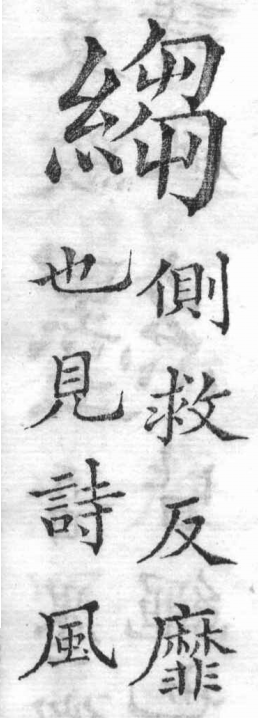 縐
側救反靡
也見詩風